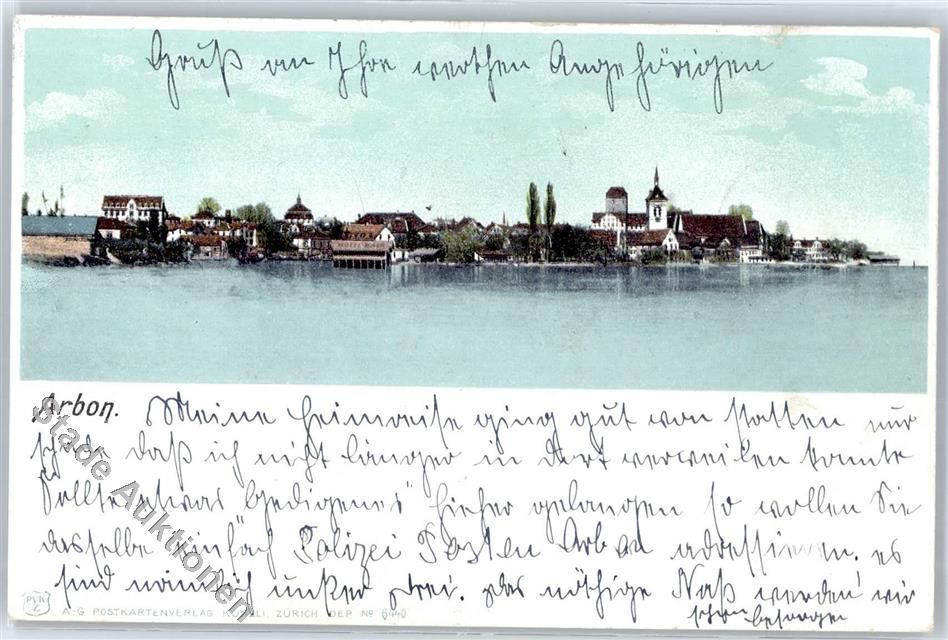 Gruß an Ihre werthen Angehörigen
Arbon. Meine Heimreise ging gut von statten nur
schade daß ich nicht länger in dort verweilen konnte
Sollte etwas "Gedigenes" hieher gelangen so wollen Sie
dasselbe einfach Polizei Posten Arbon adressieren. es
sind nämlich unser drei. das nöthige Naß werden wir
schon besorgen
PVK
Z
A-G POSTKARTENVERLAG KÜNZLI, ZÜRICH DEP. No 6440
Stade Auktionen